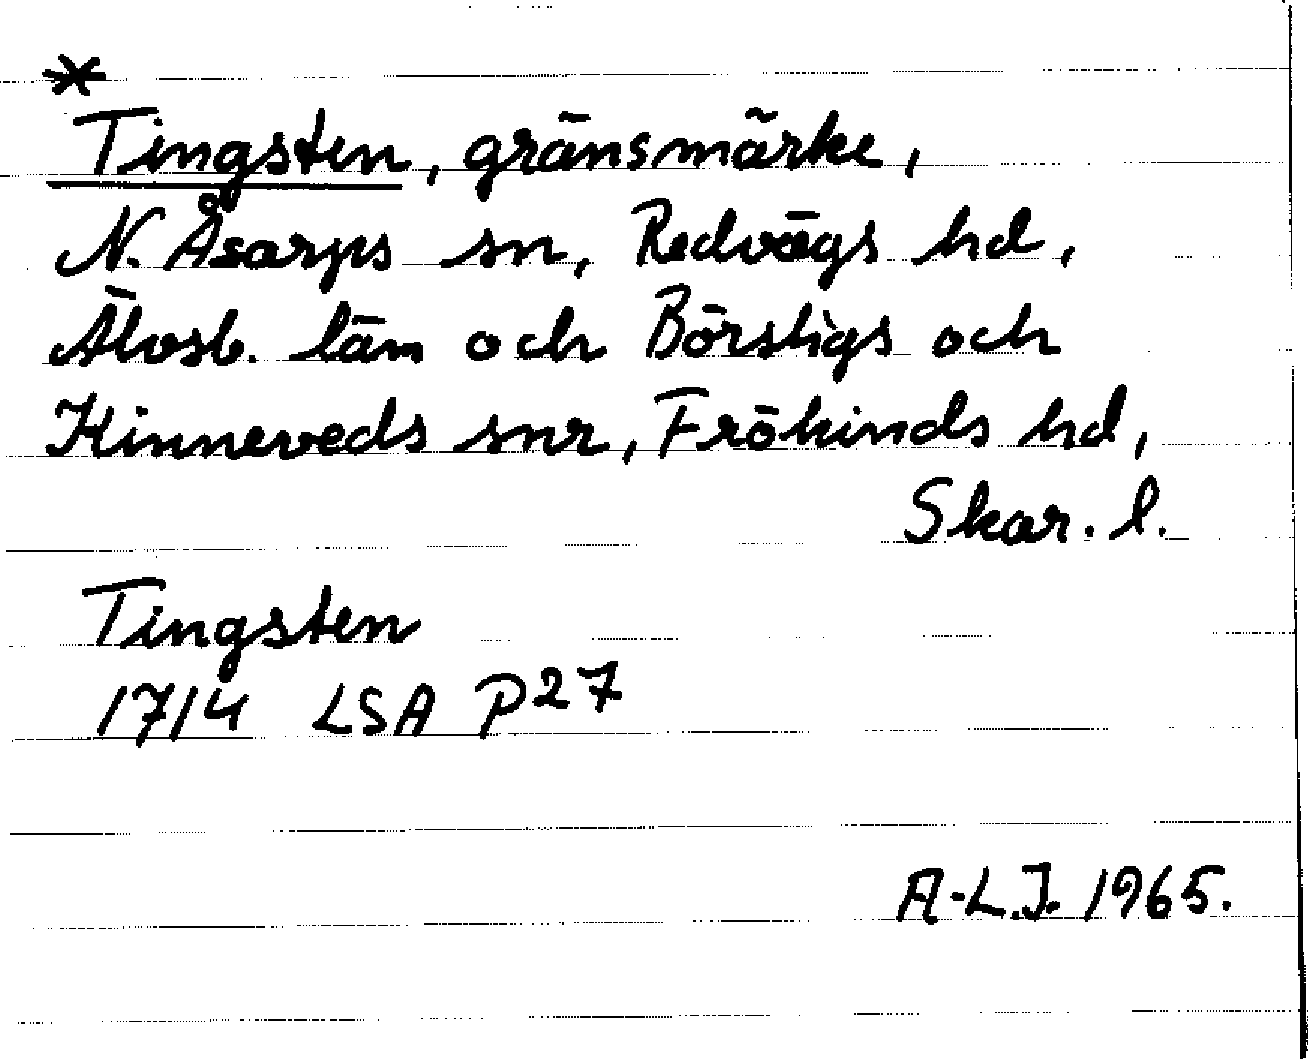 *
Tingsten, gränsmärke,
N. Åsarps sn, Redvägs hd,
Älvsb. län och Börstigs och
Kinneveds snr, Frökinds hd,
Skar. l.
Tingsten
1714 LSA P27
A-L.J. 1965.